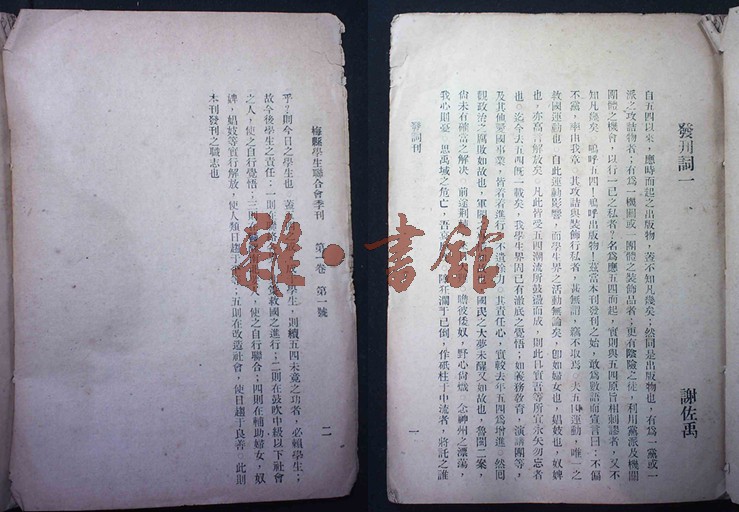 發刊詞一
謝佐禹
自五四以來,應時而起之出版物,蓋不知幾矣;然同是出版物也,有為一黨或一
派之攻詰物者;有為一機關或一團體之裝飾品者;更有陰險之徒,利用黨派及機關
團體之機會,以行一己之私者?名為應五四而起,實則與五四原旨相刺謬者,又不
知凡幾矣。嗚呼五四!嗚呼出版物!茲當本刊發刊之始,敢為數語而宣言曰:不偏
不黨,率由我章,其攻詰與裝飾行私者,其無謂,竊不取焉。夫五四運動,唯一之
救國運動也。自此運動影響,而學生界之活動無論矣,卽如婦女也,娼妓也,奴婢
也,亦高言解放矣。凡此皆受五四潮流所鼓盪而成,則此日實吾等所宜永矢勿忘者
也。迄今去五四旣一載矣,我學生界固已有澈底之覺悟;如義務教育,演講團等,
及其他愛國事業,皆着着進行,不遺餘力。其責任心,實較去年五四為增進。然囘
觀政治之腐敗如故也,軍閥 國民之大夢未醒又如故也,魯閩二案,
尙未有確當之解决,前途荊 瞻彼倭奴,野心尙熾。念神州之漂蕩,
我心則憂,思禹域之危亡,吾 狂瀾于已倒,作砥柱于中流者,將託之誰
發詞刊
一
梅縣學生聯合會季刊 第一卷 第一號
二
乎?則今日之學生也。蓋 學生,則續五四未竟之功者,必賴學生;
故今後學生之責任:一則在 救國之進行;二則在鼓吹中級以下社會
之人,使之自行覺悟;三則 人,使之自行聯合;四則在補助婦女,奴
婢,娼妓等實行解放,使人類日趨于 五則在改造社會,使日趨于良善。此則
本刊發刊之職志也。
雜·書館